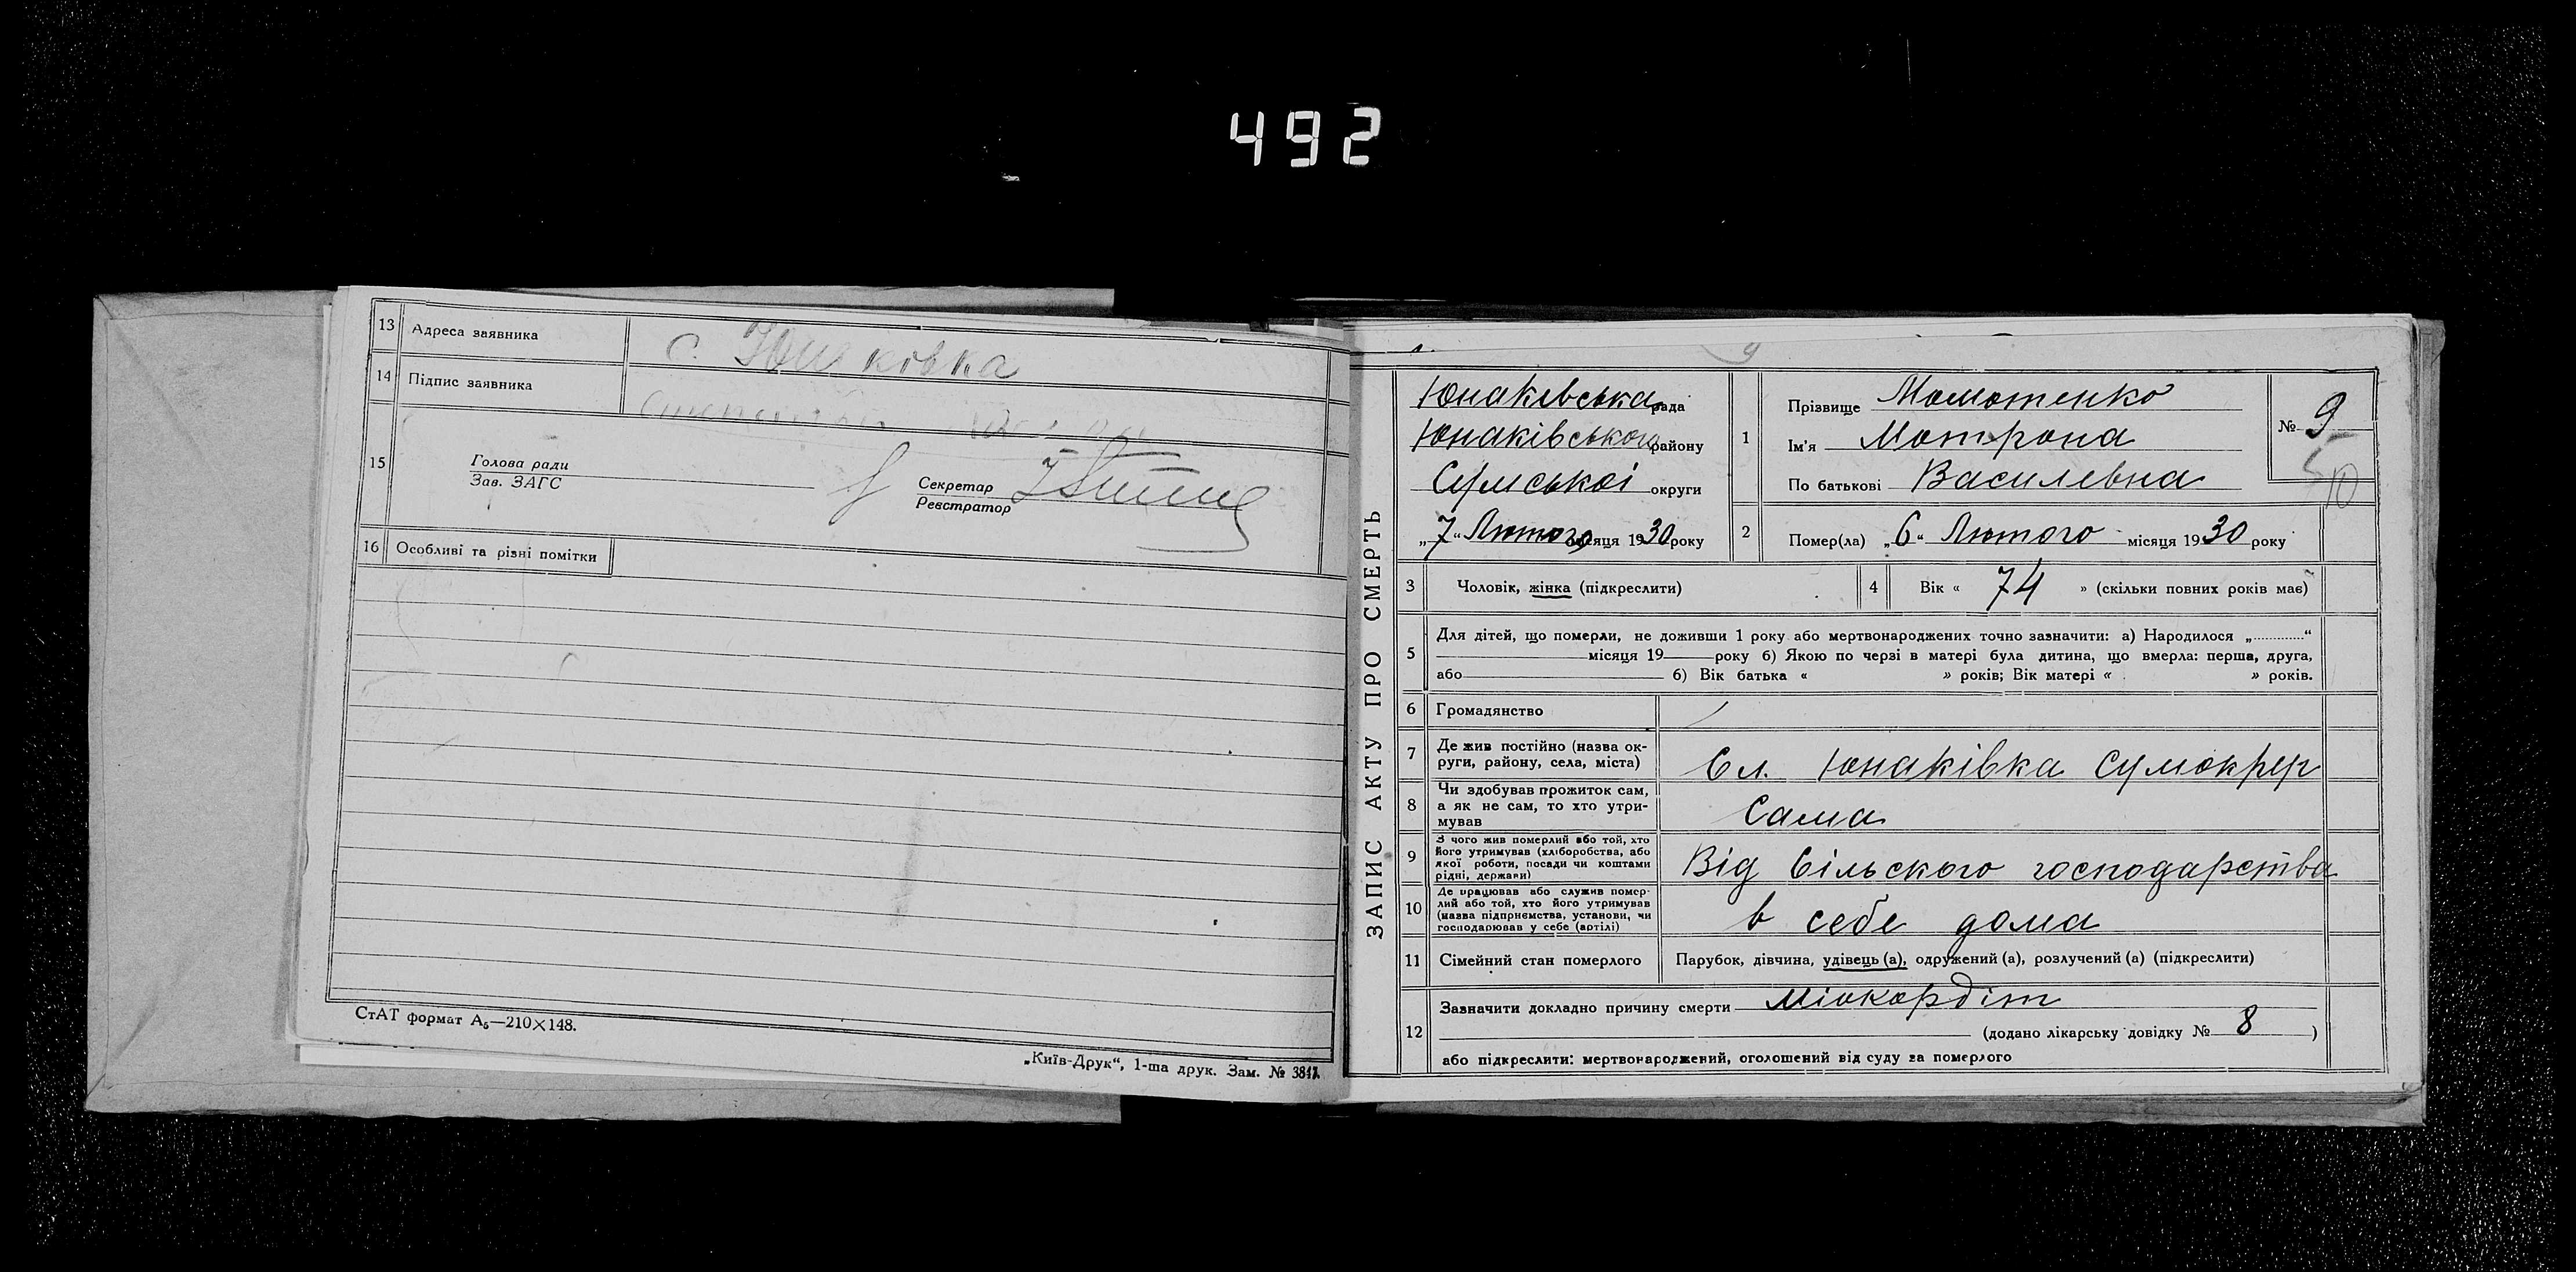 492
13 Адреса заявника с. Юнаківка
14 Підпис заявника
15 Голова ради
Зав. ЗАГС
Секретар
Реєстратор
16 Особливі та різні помітки
СтАТ формат А5—210×148.
„Київ-Друк“, 1-ша друк. Зам. № 3847.
ЗАПИС АКТУ ПРО СМЕРТЬ
Юнаківська рада
Юнаківського району
Сумської округи
„7“ Лютого місяця 1930 року
1 Прізвище Момотенко
Ім'я Мотрона
По батькові Василевна
№ 9
10
2 Помер(ла) „6“ Лютого місяця 1930 року
3 Чоловік, жінка (підкреслити)
4 Вік « 74 » (скільки повних років має)
5 Для дітей, що померли, не доживши 1 року або мертвонароджених точно зазначити: а) Народилося „............“
місяця 19 року б) Якою по черзі в матері була дитина, що вмерла: перша, друга,
або б) Вік батька « » років; Вік матері « » років.
6 Громадянство
7 Де жив постійно (назва ок-
руги, району, села, міста) Сл. Юнаківка
8 Чи здобував прожиток сам,
а як не сам, то хто утри-
мував Сама
9 З чого жив померлий або той, хто
його утримував (хліборобства, або
якої роботи, посади чи коштами
рідні, держави) Від сільского господарства
10 Де працював або служив помер-
лий або той, хто його утримував
(назва підприємства, установи, чи
господарював у себе (артілі) в себе дома
11 Сімейний стан померлого Парубок, дівчина, удівець (а), одружений (а), розлучений (а) (підкреслити)
12 Зазначити докладно причину смерти Міокардіт
(додано лікарську довідку № 8 )
або підкреслити: мертвонароджений, оголошений від суду за померлого